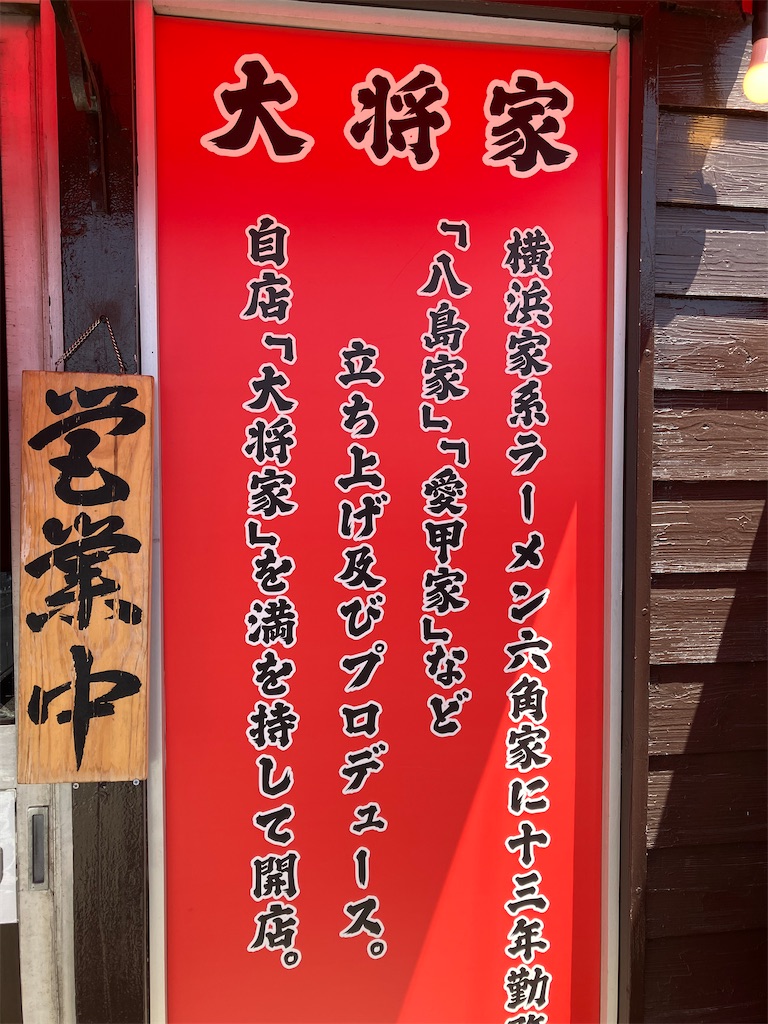 大将家
横浜家系ラーメン六角家に十三年勤
「八島家」「愛甲家」など
立ち上げ及びプロデュース。
自店「大将家」を満を持して開店。
営業中